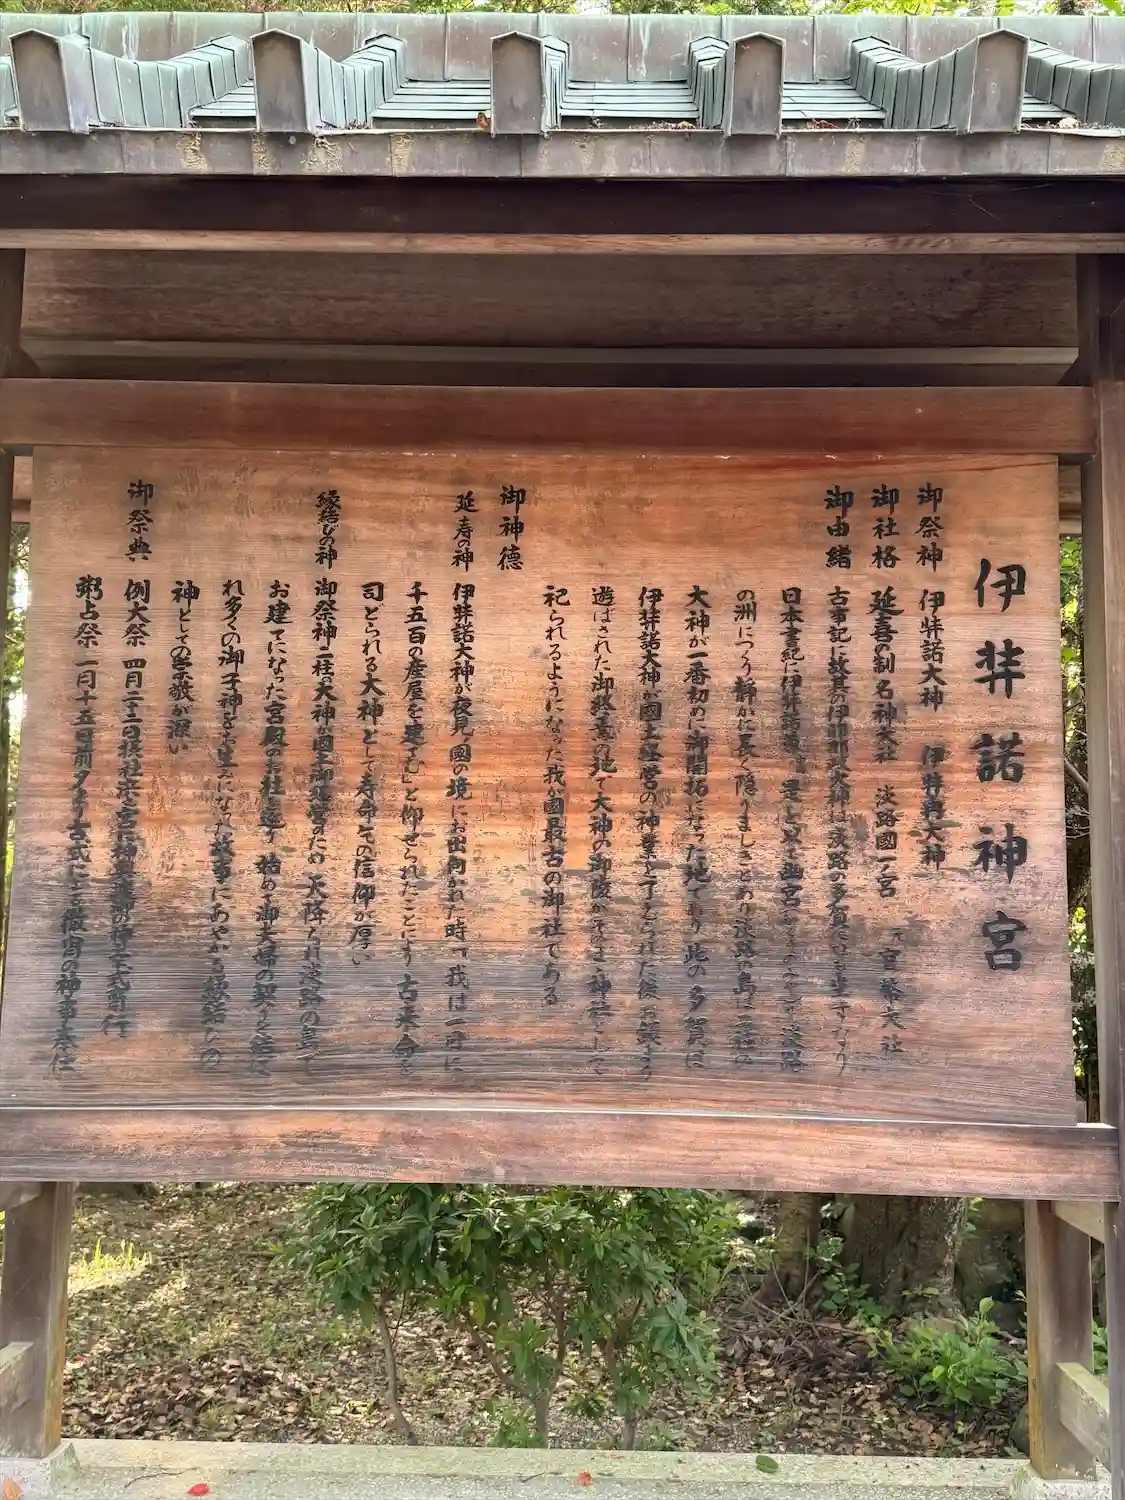 伊弉諾神宮
御祭神 伊弉諾大神 伊弉冉大神
御社格 延喜の制 名神大社 淡路國一ノ宮 元官幣大社
御由緒 古事記に故其の伊耶那岐大神は淡路の多賀になも坐すなり
日本書紀に伊弉諾尊 是を以て幽宮を 淡路
の洲につくり静かに長く隠りましきとあり淡路の島は
大神が一番初めに御開拓になった地であり此の多賀は
伊弉諾大神が國土経営の神業を了えられた後お
遊ばされた御終焉の地で大神の御陵がそのまゝ神社として
祀られるようになった我が國最古の御社である
御神徳
延寿の神 伊弉諾大神が夜見国の境にお出向かれた時「我は一日に
千五百の産屋を建てむ」と仰せられたことにより古来命を
司どられる大神として寿命その信仰が厚い
縁結びの神 御祭神二柱の大神が國土御経営のため天降られ淡路の島で
お建てになった宮殿の御柱を 始めて御夫婦の契りを結ば
れ多くの御子神をお生みになられた故事にあやかる縁結びの
神としての崇敬が深い
御祭典 例大祭 四月二十二日摂社浜の宮に神輿渡御の神幸式斎行
粥占祭 一月十五日前夕より古式による徹宵の神事奉仕